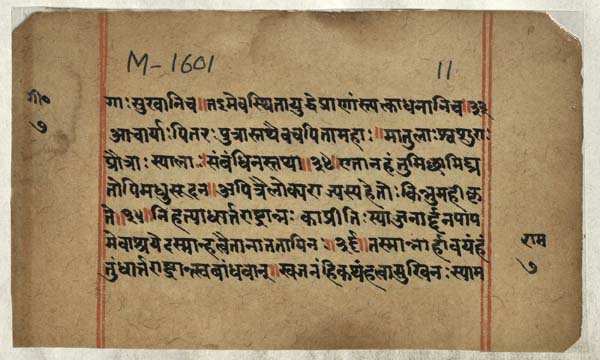 M-1601 11
गी०
७
गाः सुखानिच ॥ तऽमेवस्थितायुद्धेप्राणांस्त्यक्ताधनानिच ॥३३
आचार्याः पितरः पुत्रास्तथैवचपितामहाः ॥ मातुलाः श्वशुराः
पौत्राः स्यालाः संबंधिनस्तथा ॥३४ एतान्नहंतुमिच्छामिघ्न
तोपिमधुसूदन ॥ अपित्रैलोक्यराज्यस्यहेतोः किंनुमहीकृ
ते ॥३५॥ निहत्यधार्त्तराष्ट्रान्नः काप्रीतिः स्याज्जनार्द्दनपाप
मेवाश्रयेदस्मान्हत्वैतानाततायिनः ॥३६॥ तस्मान्नार्हावयंहं
तुंधार्त्तराष्ट्रान्स्वबांधवान् ॥ स्वजनंहिकथंहत्वासुखिनः स्याम
राम
७